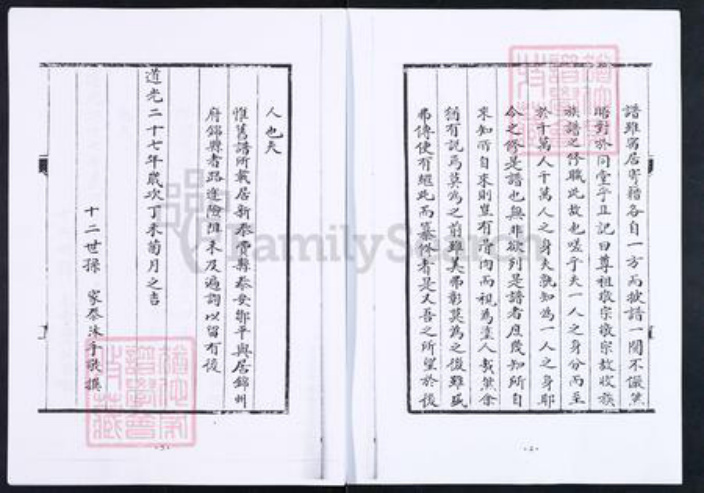 譜雖寓居寄籍各自一方而披譜一閱不儼然
晤對於同堂乎且記曰尊祖故敬宗敬宗故收族
族譜之修職此故也嗟乎夫一人之身分而至
於千萬人千萬人之身夫孰知為一人之身耶
今之修是譜也無非欲列是譜者庶幾知所自
來知所自來則豈有骨肉而視為塗人哉然余
猶有說焉莫為之前雖美弗彰莫為之後雖盛
弗傳使有繼此而纂修者是又吾之所望於後
·2·
人也夫
惟舊譜所載居新泰費縣泰安鄒平與居錦州
府錦縣者路途險阻未及遍詢以留有後
道光二十七年歲次丁未菊月之吉
十二世孫 家泰沐手敬撰
·3·
FamilySearch